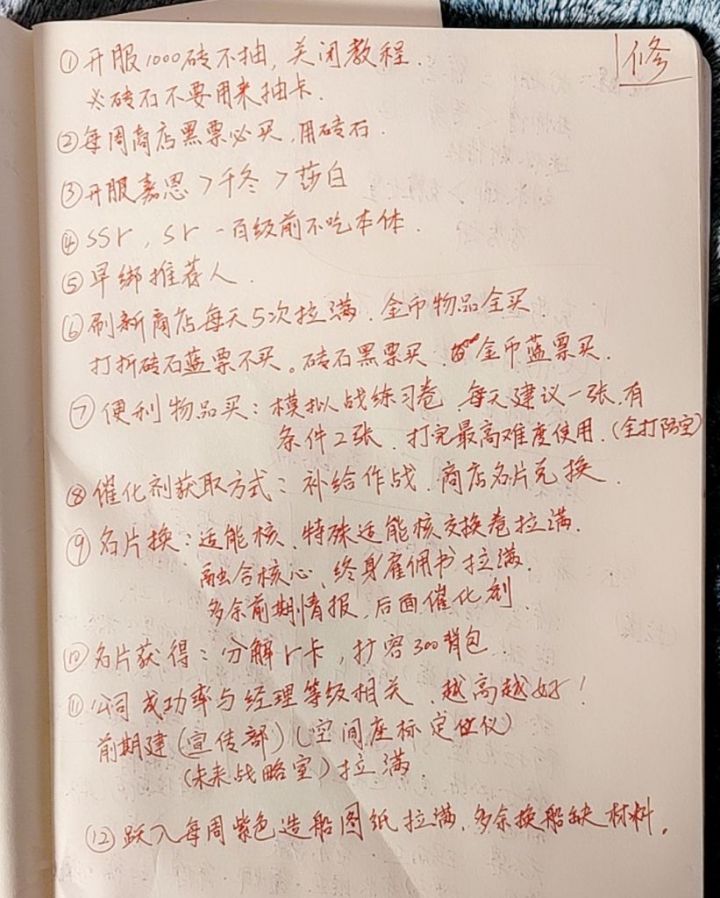 修
①开服1000砖不抽,关闭教程.
※砖石不要用来抽卡.
②每周商店黑票必买,用砖石.
③开服嘉恩>千冬>莎白
④SSr,Sr一百级前不吃本体.
⑤早绑推荐人.
⑥刷新商店每天5次拉满.金币物品全买
打折砖石蓝票不买。砖石黑票买.金币蓝票买.
⑦便利物品买:模拟战练习卷.每天建议一张.有
条件2张.打完最高难度使用.(全打防空)
⑧催化剂获取方式:补给作战.商店名片兑换.
⑨名片换:适能核、特殊适能核交换卷拉满.
融合核心、终身雇佣书拉满.
多余前期情报,后面催化剂.
⑩名片获得:分解r卡,扩容300背包
⑪公司成功率与经理等级相关.越高越好!
前期建(宣传部)(空间座标定位仪)
(未来战略室)拉满.
⑫跃入每周紫色造船图纸拉满,多余换船缺材料。